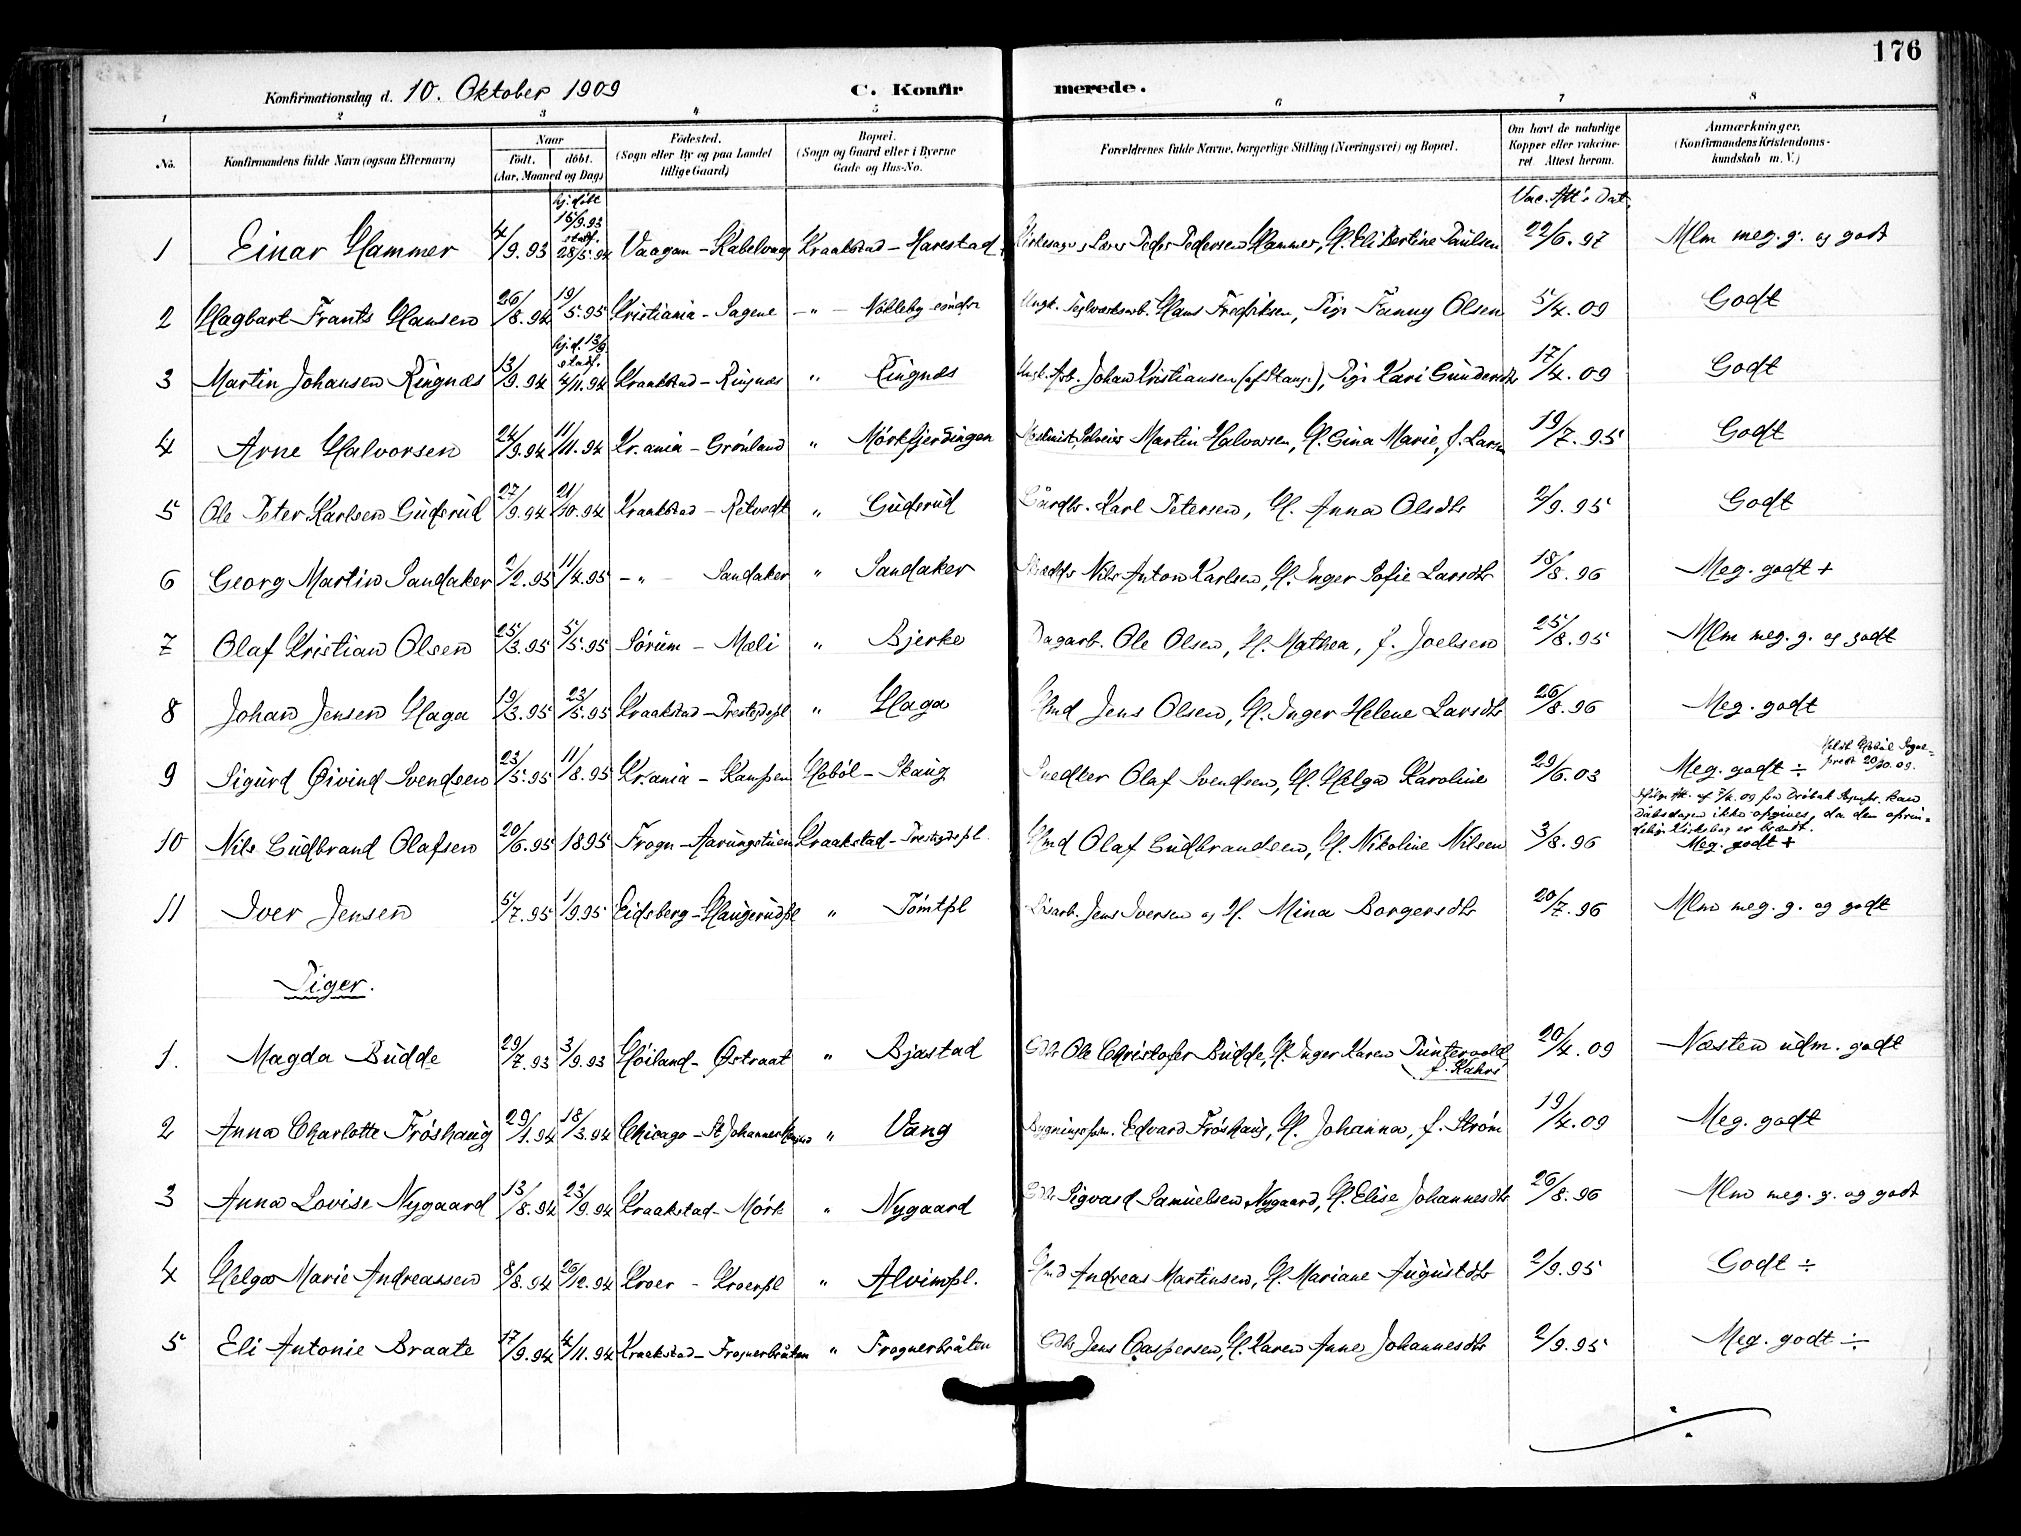 176
Konfirmationsdag d. 10. Oktober 1909 C. Konfirmerede.
1 2 3 4 5 6 7 8
No. Konfirmandens fulde Navn (ogsaa Efternavn) Naar Født. døbt. (Aar, Maaned og Dag) Fødested. (Sogn eller By og paa Landet tillige Gaard) Bopæl. (Sogn og Gaard eller i Byerne Gade og Hus-No. Forældrenes fulde Navne, borgerlige Stilling (Næringsvei) og Bopæl. Om havt de naturlige Kopper eller vakcineret Attest herom. Anmærkninger. (Konfirmandens Kristendomskundskab m. V.)
Vac. Att's Dat.
1 Einar Hammer 4/9.93 hj. døbt 15/9.93 stadf. 28/5.94 Vaagan - Kabelvaag Kraakstad - Harestad Peder Pedersen Hammer, H. Eli Bertine Paulsen 22/6.97 Mlm meg. g. og godt
2 Hagbart Frants Hansen 26/8.94 19/5.95 Kristiania - Sagene - " - Nökleby söndre Ungk. Teglværksarb. Hans Fredriksen, Pige Fanny Olsen 5/4.09 Godt
3 Martin Johansen Ringnæs 13/9.94 hj. d. 13/9 stadf. 4/11.94 Kraakstad - Ringnæs " Ringnæs Ungk. Arb. Johan Kristiansen (af Stange), Pige Kari Gundersdtr 17/4.09 Godt
4 Arne Halvorsen 24/9.94 11/11.94 Kr.ania - Grönland " Mörkfjerdingen Martin Halvorsen, H. Gina Marie, f. Larsen 19/7.95 Godt
5 Ole Peter Karlsen Guderud 27/9.94 21/10.94 Kraakstad - Retvedt " Guderud Gårdbr. Karl Petersen, H. Anna Olsdtr 2/9.95 Godt
6 Georg Martin Sandaker 2/2.95 11/4.95 - " - Sandaker " Sandaker Nils Anton Karlsen, H. Inger Sofie Larsdtr 18/8.96 Meg. godt +
7 Olaf Kristian Olsen 25/3.95 5/5.95 Sørum - Mæli " Bjerke Dagarb. Ole Olsen, H. Mathea, f. Joelsen 25/8.95 Mlm meg. g. og godt
8 Johan Jensen Haga 19/3.95 23/5.95 Kraakstad - Prestegdspl " Haga Hmd Jens Olsen, H. Inger Helene Larsdtr 26/8.96 Meg. godt
9 Sigurd Øivind Svendsen 23/5.95 11/8.95 Kr.ania - Kampen Hoböl - Skaug Snedker Olaf Svendsen, H. Helga Karoline 29/6.03 Meg. godt ÷ Hoböl Sogneprest 20/10.09.
10 Nils Gudbrand Olafsen 20/6.95 1895 Frogn - Aarungstuen Kraakstad - Prestegdspl. Hmd Olaf Gudbrandsen, H. Nikoline Nilsen 3/8.96 Ifölge Att. af 7/4.09 fra Dröbak Sognepr. kan Dåbsdagen ikke opgives, da den oprindelige Kirkebog er brændt. Meg. godt +
11 Iver Jensen 5/7.95 1/9.95 Eidsberg - Haugerudpl " Tömtpl Jens Iversen og H. Mina Borgersdtr 20/7.96 Mlm meg. g. og godt
Piger.
1. Magda Budde 29/7.93 3/9.93 Höiland - Østraat " Bjastad Gdbr Ole Christofer Budde, H. Inger Karen Puntervold f. Kahrs 20/4.09 Næsten udm. godt
2 Anna Charlotte Fröshaug 29/1.94 18/3.94 Chicago - St Johannes " Vang Bygningssnm. Edvard Fröshaug, H. Johanna, f. Ström 19/4.09 Meg. godt
3 Anna Lovise Nygaard 13/8.94 23/9.94 Kraakstad - Mörk " Nygaard Gdbr Sigvard Samuelsen Nygaard, H. Elise Johannesdtr 26/8.96 Mlm meg. g. og godt
4 Helga Marie Andreassen 8/8.94 26/12.94 Kroer - Kroerpl " Alvimpl. Hmd Andreas Martinsen, H. Mariane Augustdtr 2/9.95 Godt ÷
5 Eli Antonie Braate 17/9.94 4/11.94 Kraakstad - Frognerbråten " Frognerbråten Gdbr Jens Caspersen, H. Karen Anne Johannesdtr 2/9.95 Meg. godt ÷